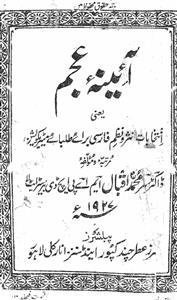 آئینۂ عجم
یعنی
انتخابات نثر و نظم فارسی برائے طلبائے میٹریکولیشن
مرتبہ و مؤلفہ
ڈاکٹر سر محمد اقبال ایم اے پی ایچ ڈی بیرسٹر ایٹ لا
۱۹۲۷ء
پبلشرز
عطر چند کپور اینڈ سنز انارکلی لاہور